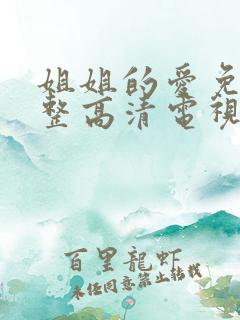 姐姐的愛免
整高清電視
百里龍虾
未任同意禁止转载